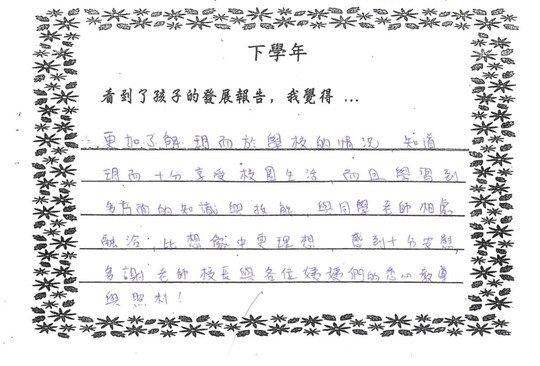 下學年
看到了孩子的發展報告，我覺得 ...
更加了解玥而於學校的情況，知道
玥而十分享受校園生活，而且學習到
多方面的知識與技能，與同學老師相處
融洽，比想像中更理想，感到十分安慰，
多謝老師校長與各位姨姨們的悉心教導
與照料！